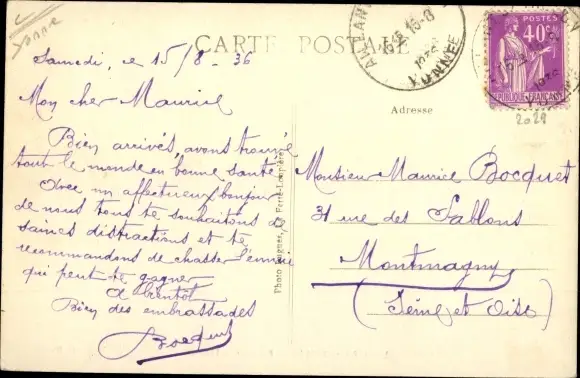 Yonne
CARTE POSTALE
Samedi, le 15/8 - 36
Mon cher Maurice
Bien arrivés, avons trouvé
tout le monde en bonne santé
Avec un affectueux bonjour
de nous tous te souhaitons de
saines distractions et te
recommandons de chasser l'ennui
qui peut te gagner
A bientôt
Bien des embrassades
Bocquet
Photo
La Ferté-Loupière
15-8
1936
YONNE
POSTES
40c
REPUBLIQUE FRANÇAISE
2029
Adresse
Monsieur Maurice Bocquet
31 rue des Sablons
Montmagny
(Seine et Oise)